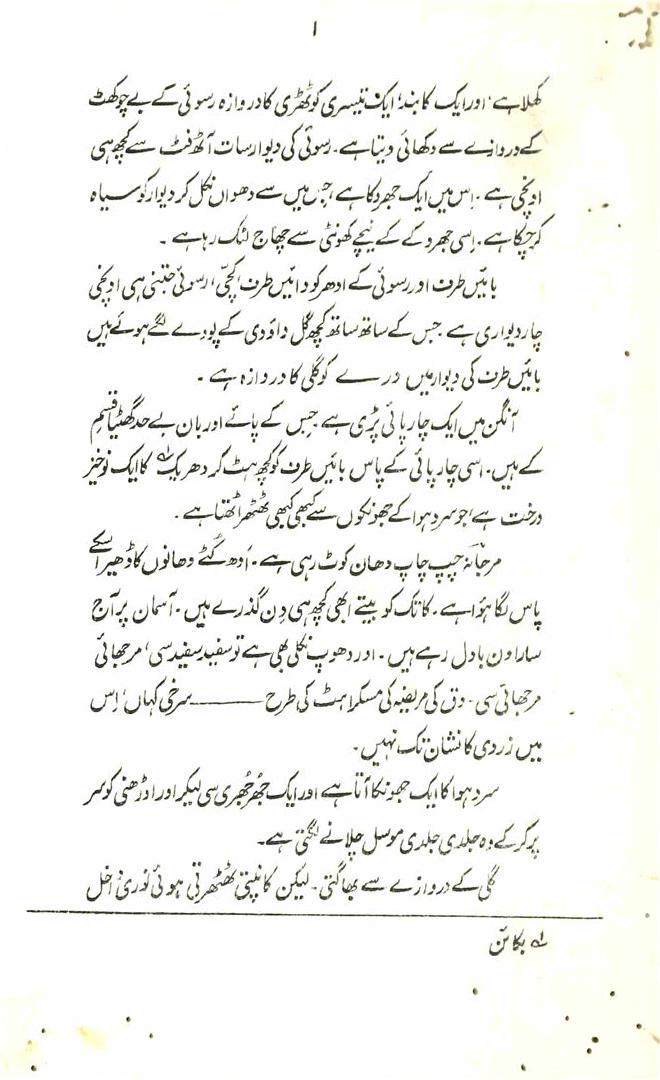 ۱
کھلا ہے، اور ایک کا بند؛ ایک تیسری کوٹھڑی کا دروازہ رسوئی کے بے چوکھٹ
کے دروازے سے دکھائی دیتا ہے۔ رسوئی کی دیوار سات آٹھ فٹ سے کچھ ہی
اونچی ہے۔ اِس میں ایک جھروکا ہے جس میں سے دھواں نکل کر دیوار کو سیاہ
کر چکا ہے۔ اِسی جھروکے کے نیچے کھونٹی سے چھاج لٹک رہا ہے۔
بائیں طرف اور رسوئی کے ادھر کو دائیں طرف کچّی، رسوئی جتنی ہی اونچی
چار دیواری ہے جس کے ساتھ ساتھ کچھ گل داؤدی کے پودے لگے ہوئے ہیں
بائیں طرف کی دیوار میں ورے کو گلی کا دروازہ ہے۔
آنگن میں ایک چارپائی پڑی ہے جِس کے پائے اور بان بے حد گھٹیا قسم
کے ہیں۔ اسی چارپائی کے پاس بائیں طرف کو کچھ ہٹ کر دھریک لہ کا ایک نوخیز
درخت ہے جو سرد ہوا کے جھونکوں سے کبھی کبھی ٹھٹھر اٹھتا ہے۔
مرجانہ چپ چاپ دھان کوٹ رہی ہے۔ اَدھ کُٹے دھانوں کا ڈھیر اسکے
پاس لگا ہؤا ہے۔ کاتک کو بیتے ابھی کچھ ہی دِن گذرے ہیں۔ آسمان پر آج
سارا دن بادل رہے ہیں۔ اور دھوپ نکلی بھی ہے تو سفید سفید سی، مرجھائی
مرجھائی سی۔ دق کی مریضہ کی مسکراہٹ کی طرح ——— سرخی کہاں، اِس
میں زردی کا نشان تک نہیں۔
سرد ہوا کا ایک جھونکا آتا ہے اور ایک جھُرجھُری سی لیکر اور اوڑھنی کو سر
پر کر کے وہ جلدی جلدی موسل چلانے لگتی ہے۔
گلی کے دروازے سے بھاگتی۔ لیکن کانپتی ٹھٹھرتی ہوئی نوری داخل
لہ بکائن